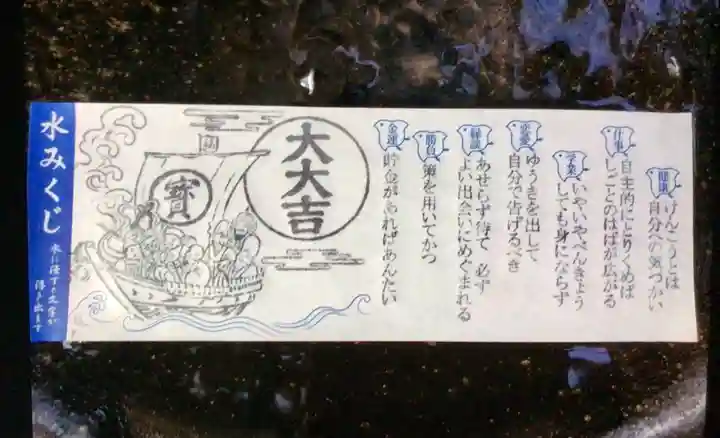 健康
けんこうとは
自分への気づかい
仕事
自主的にとりくめば
しごとのはばが広がる
学業
いやいやべんきょう
しても身にならず
恋愛
ゆうきを出して
自分で告げるべき
縁談
あせらず待て 必ず
よい出会いにめぐまれる
勝負
策を用いてかつ
金運
貯金があればあんたい
大大吉
寳
水みくじ
水に浸すと文字が
浮き出ます